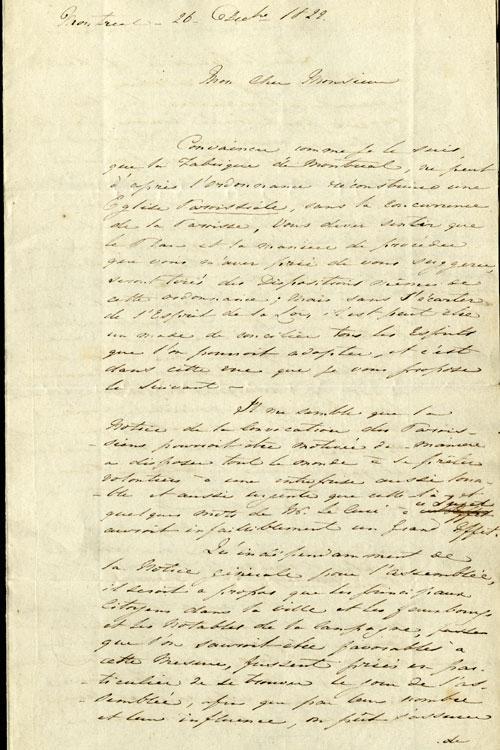 Montreal - 26 - Decbre 1822.
Mon Cher Monsieur
Convaincu comme je le suis
que la Fabrique de Montreal, ne peut
d'après l'ordonnance reconstruire une
Eglise Paroissiale, sans la concurrence
de la Paroisse, Vous devez sentir que
le Plan et la maniere de proceder
que vous m'avez prié de vous suggerer,
seront tirés des Dispositions mêmes de
cette ordonnance; Mais sans s'écarter
de l'Esprit de la Loi, c'est peut être
un mode de concilier tous les Esprits
que l'on pourroit adopter, et c'est
dans cette vue que je vous propose
le suivant -
Il me semble que la
Notice de la Convocation des Parois-
siens pourroit être motivée de maniere
a disposer tout le monde à se prêter
volontiers à une entreprise aussi loua-
ble et aussi urgente que celle là et
quelques mots de Mr. le Curé à ce Sujet
auroit infailliblement un grand Effet.
Qu'indépendamment de
la Notice générale pour l'assemblée,
il seroit à propos que les principaux
Citoyens dans la ville et les fauxbourgs
et les Notables de la Campagne,
que l'on sauroit être favorables à
cette Mesure, fussent priés en par-
ticulier de se trouver le jour de l'as-
semblée, afin que par leur nombre
et leur influence, on put s'assurer
de